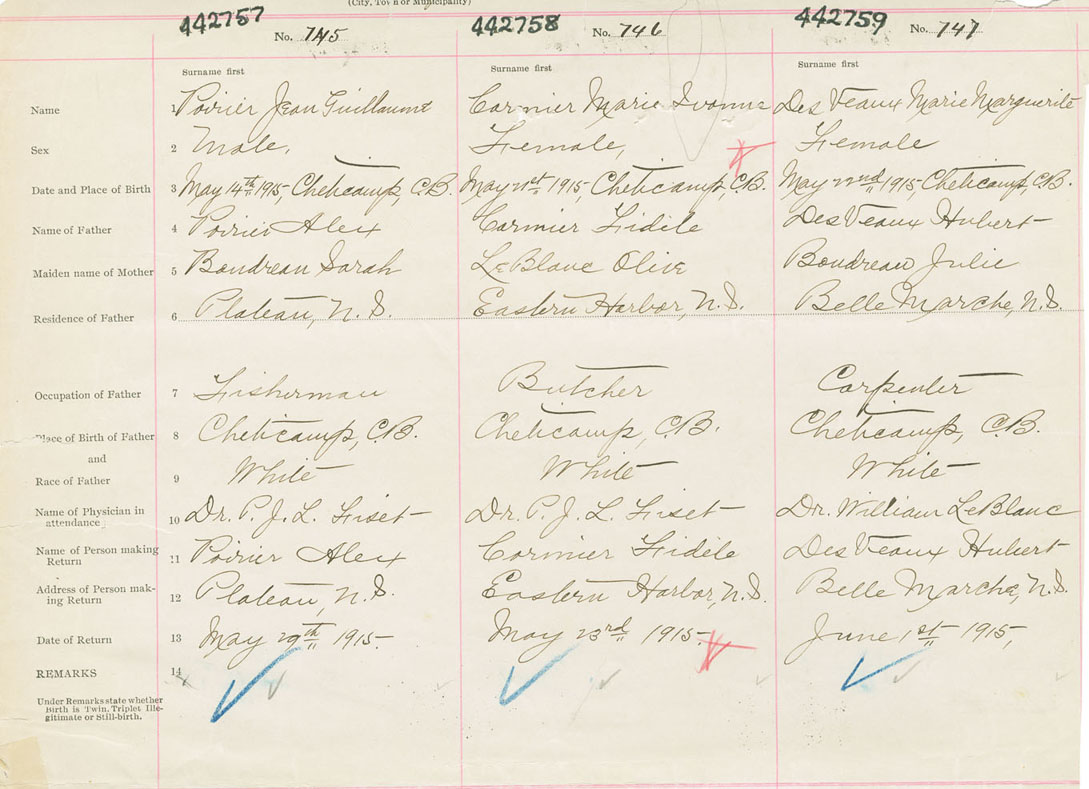 (City, Town or Municipality)
442757 442758 442759
No. 745 No. 746 No. 747
Surname first Surname first Surname first
Name 1 Poirier Jean Guillaume Cormier Marie Ivonne Des Veaux Marie Marguerite
Sex 2 Male, Female, Female
Date and Place of Birth 3 May 14th 1915, Cheticamp, C.B. May 21st 1915, Cheticamp, C.B. May 22nd 1915 Cheticamp, C.B.
Name of Father 4 Poirier Alex Cormier Fidèle Des Veaux Hubert
Maiden name of Mother 5 Boudreau Sarah LeBlanc Olive Boudreau Julie
Residence of Father 6 Plateau, N.S. Eastern Harbor, N.S. Belle Marche, N.S.
Occupation of Father 7 Fisherman Butcher Carpenter
Place of Birth of Father 8 Cheticamp, C.B. Cheticamp, C.B. Cheticamp, C.B.
and
Race of Father 9 White White White
Name of Physician in
attendance 10 Dr. P. J. L. Fiset Dr. P. J. L. Fiset Dr. William LeBlanc
Name of Person making
Return 11 Poirier Alex Cormier Fidèle Des Veaux Hubert
Address of Person mak-
ing Return 12 Plateau, N.S. Eastern Harbor, N.S. Belle Marche, N.S.
Date of Return 13 May 29th 1915 May 23rd 1915. June 1st 1915,
REMARKS 14
Under Remarks state whether
Birth is Twin, Triplet Ille-
gitimate or Still-birth.